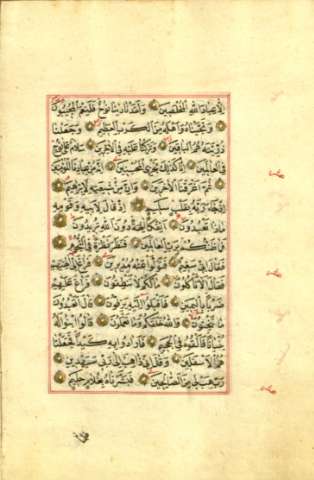 إلا عباد الله المخلصين ولقد نادينا نوح فلنعم المجيبون
ونجيناه وأهله من الكرب العظيم وجعلنا
ذريته هم الباقين وتركنا عليه في الآخرين سلام على نوح
في العالمين إنا كذلك نجزي المحسنين إنه من عبادنا المؤمنين
ثم أغرقنا الآخرين وإن من شيعته لإبراهيم
إذ جاء ربه بقلب سليم إذ قال لأبيه وقومه
ماذا تعبدون أئفكا آلهة دون الله تريدون
فما ظنكم برب العالمين فنظر نظرة في النجوم
فقال إني سقيم فتولوا عنه مدبرين فراغ إلى آلهتهم
فقال ألا تأكلون ما لكم لا تنطقون فراغ عليهم
ضربا باليمين فأقبلوا إليه يزفون قال أتعبدون
ما تنحتون والله خلقكم وما تعملون قالوا ابنوا له
بنيانا فألقوه في الجحيم فأرادوا به كيدا فجعلناهم
الأسفلين وقال إني ذاهب إلى ربي سيهدين
رب هب لي من الصالحين فبشرناه بغلام حليم